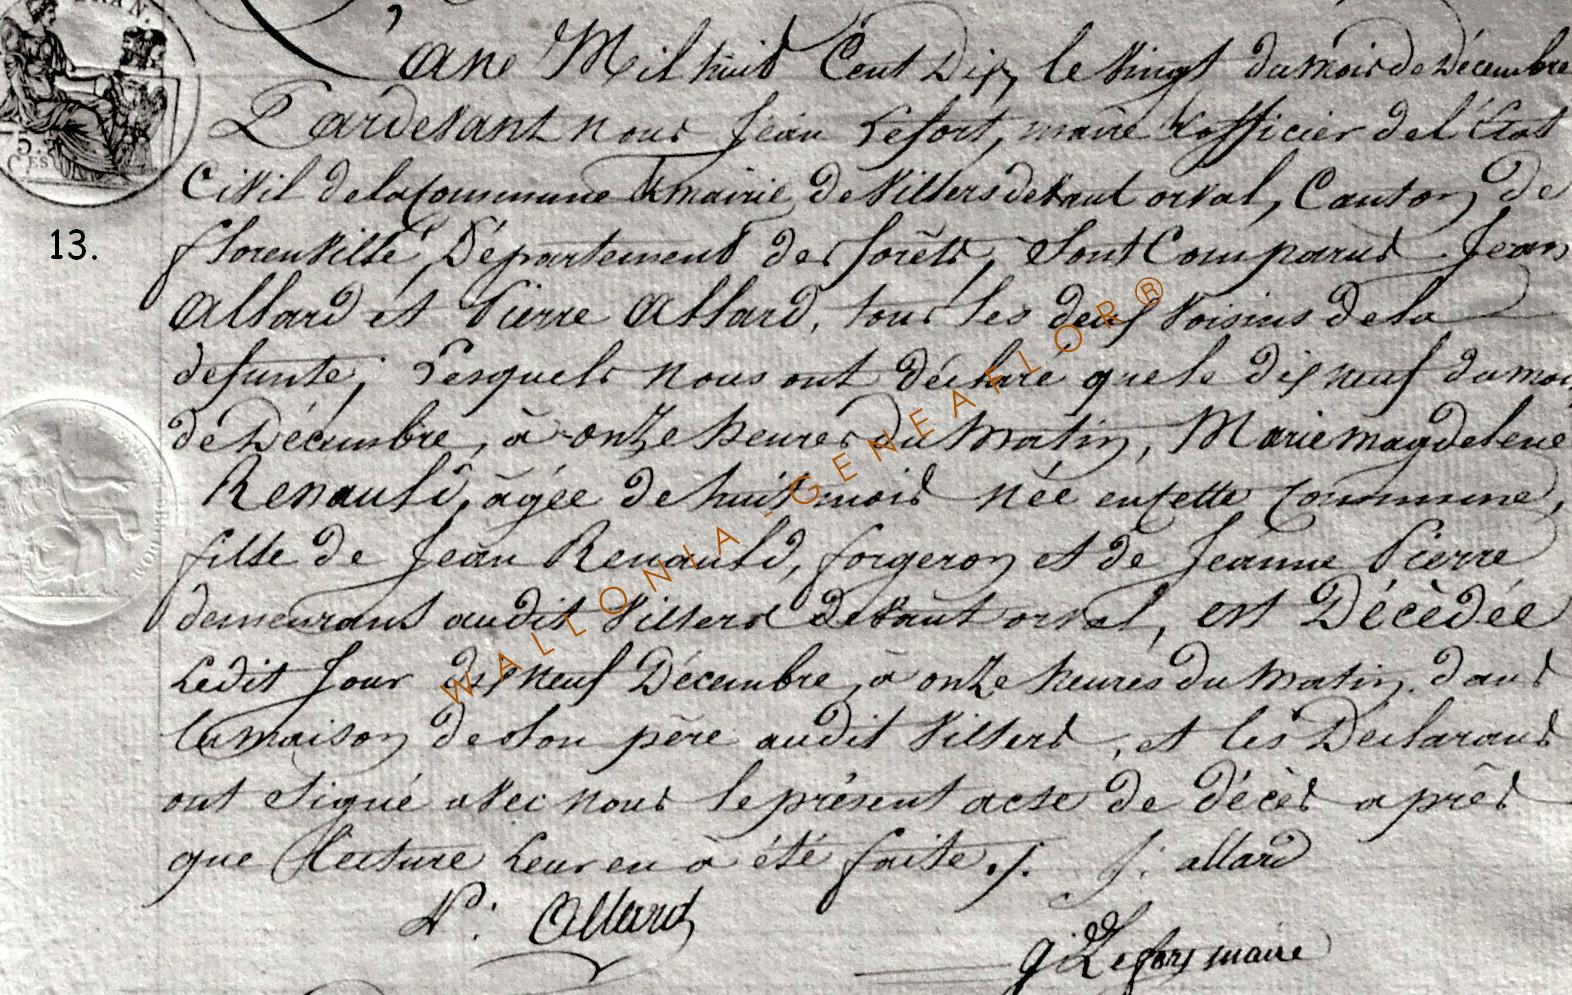 L'ane Mil huit Cent Dix, le Vingt du mois de Décembre
Pardevant nous Jean Lefort, maire & officier de l'État
Civil de la Commune & mairie de Villers devant orval, Canton de
florenville, Département des forêts, Sont Comparus Jean
Allard et Pierre Allard, tous les deux Voisins de la
defunte; Lesquels nous ont déclaré que le dix neuf du mois
de Décembre, à onze heures du Matin, Marie magdelene
Renauld, agée de huit mois née en cette Commune,
fille de Jean Renauld, forgeron et de Jeanne Pierre
demeurant audit Villers Devant orval, est Décèdée
Ledit Jour dix neuf Décembre, à onze heures du Matin, dans
la maison de Son père audit Villers, et les Declarans
ont Signé avec nous le présent acte de décès après
que Lecture Leur en à été faite./. J: allard
P: Allard
J Lefort maire
13.
5.
CES
WALLONIA - GENEAFLOR®